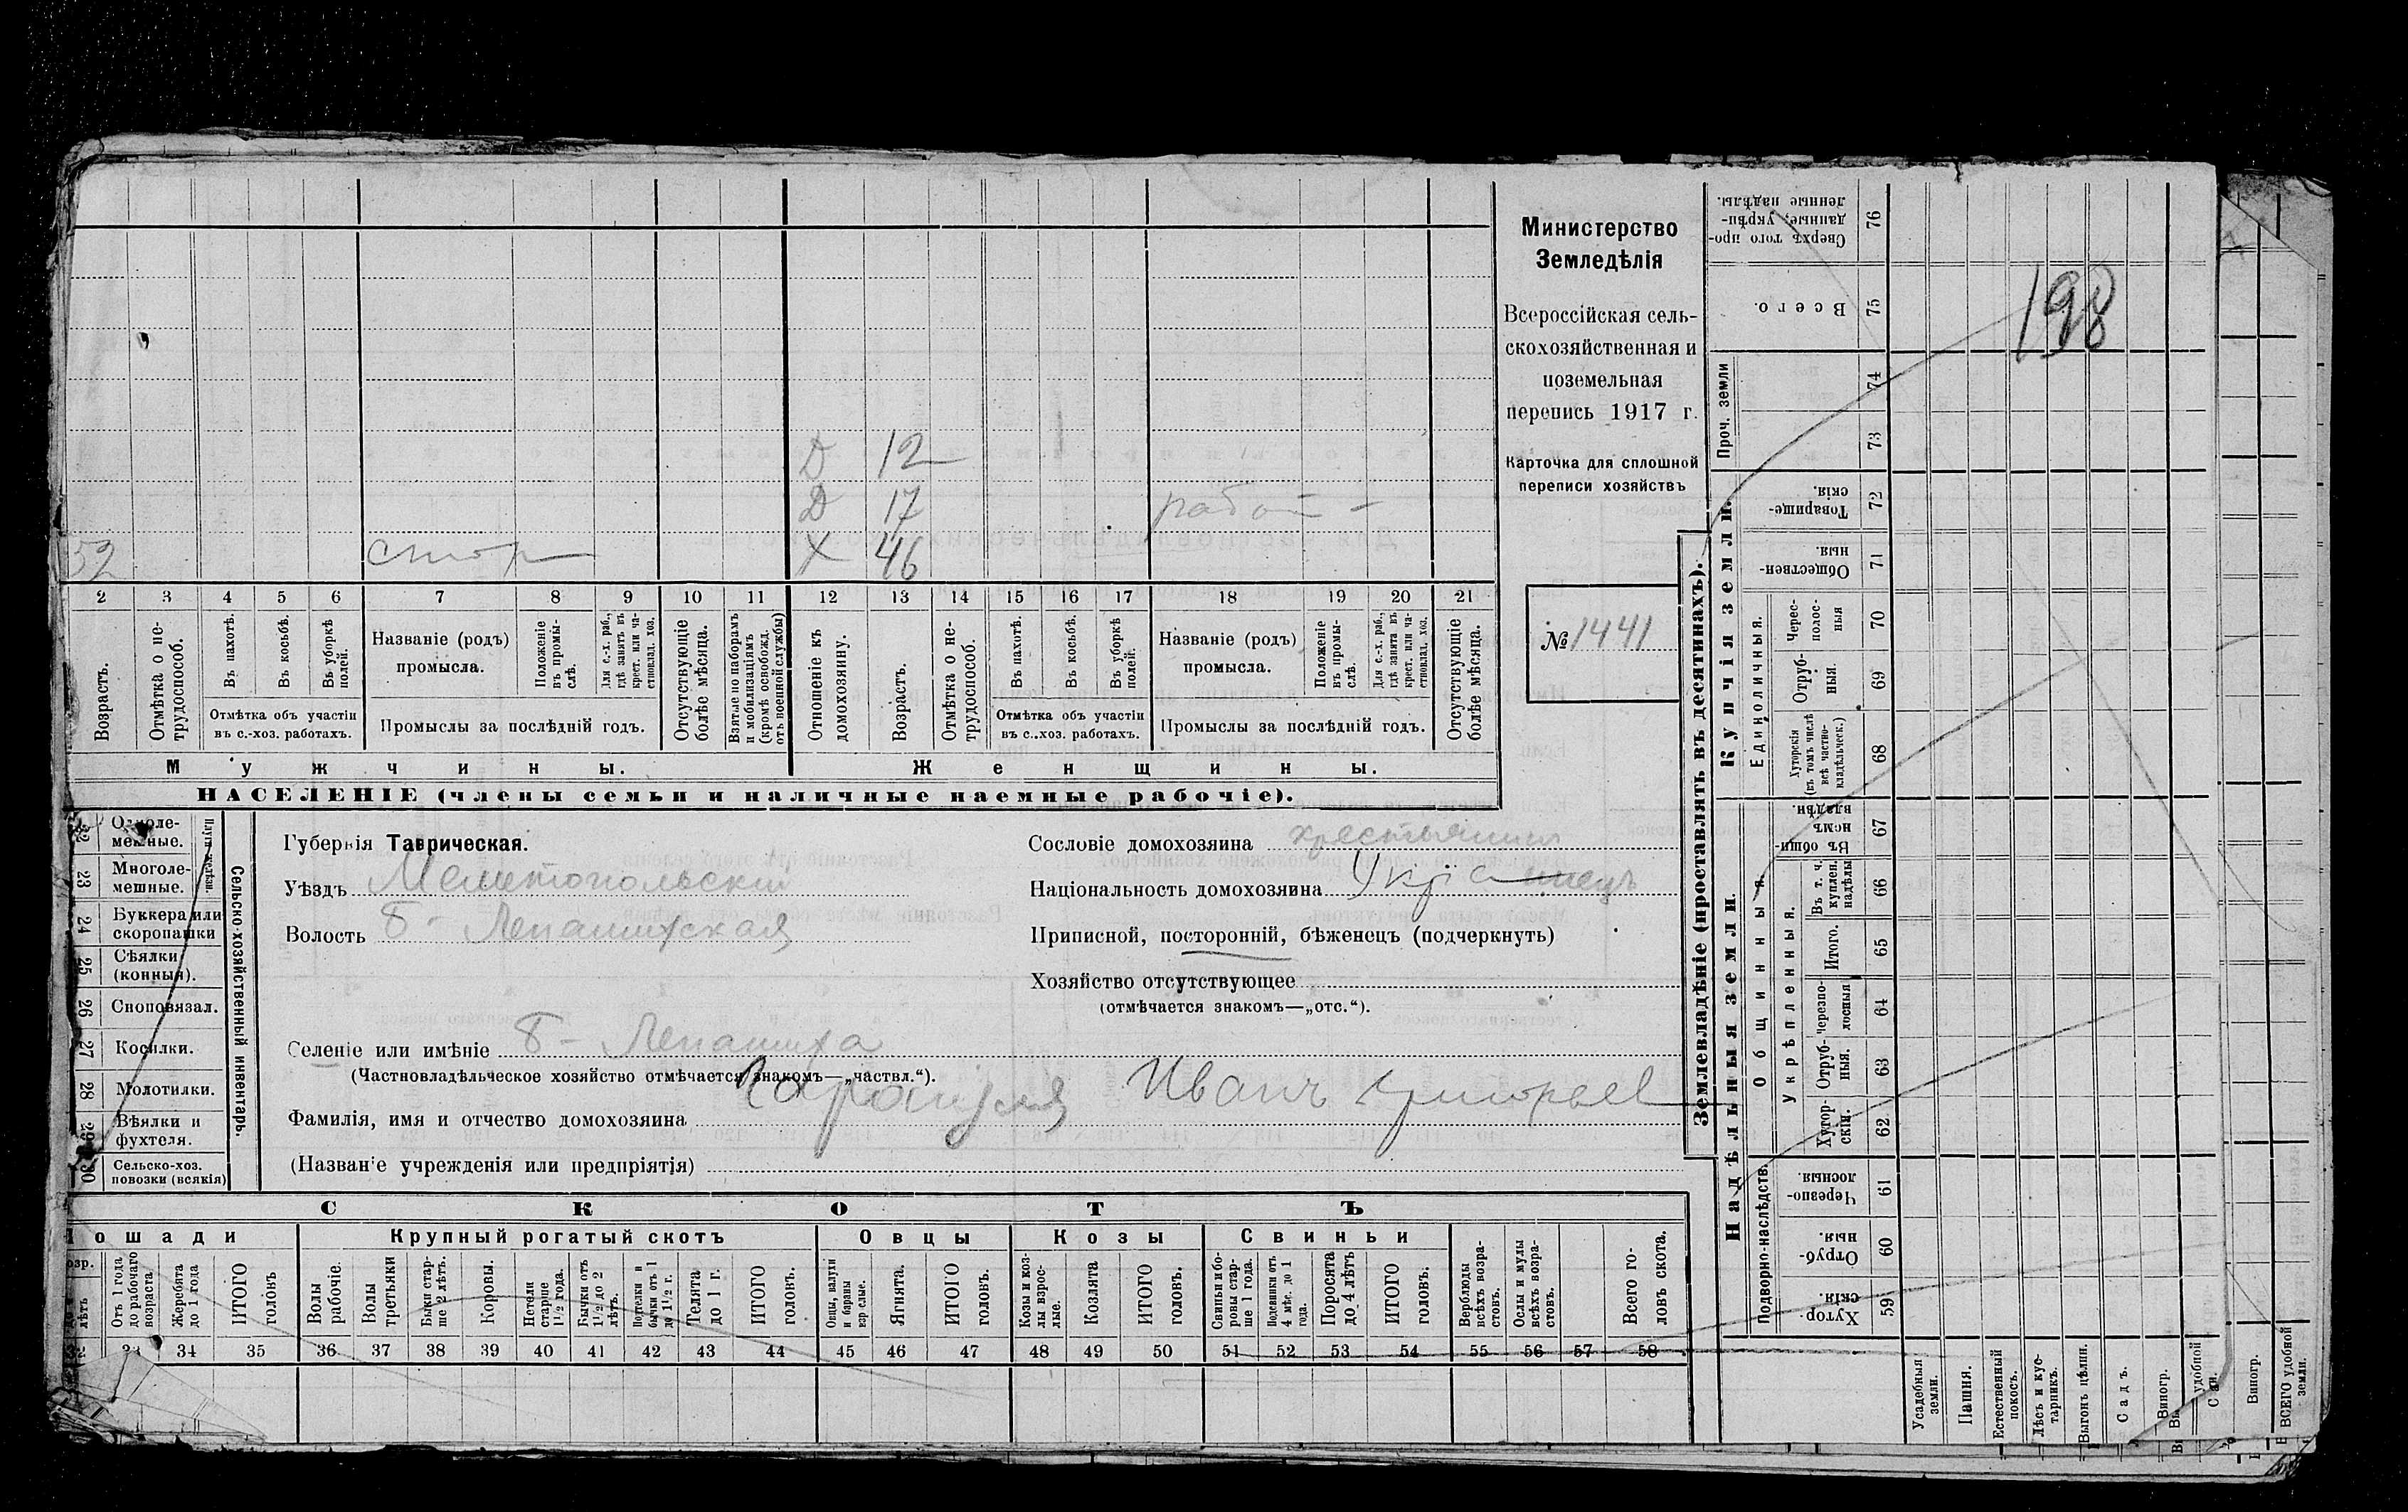 Министерство
Земледѣлія
Всероссійская сель-
скохозяйственная и
поземельная
перепись 1917 г.
Карточка для сплошной
переписи хозяйствъ
№ 1441
198
Д 12
Д 17
52 Х 46
2 3 4 5 6 7 8 9 10 11 12 13 14 15 16 17 18 19 20 21
Возрастъ.
Отмѣтка о не-
трудоспособ.
Въ пахотѣ.
Въ косьбѣ.
Въ уборкѣ
полей.
Отмѣтка объ участіи
въ с.-хоз. работахъ.
Названіе (родъ)
промысла.
Положеніе
въ промы-
слѣ.
Для с.-х. раб.,
гдѣ занятъ въ
крест. или ча-
стновлад. хоз.
Промыслы за послѣдній годъ.
Отсутствующіе
болѣе мѣсяца.
Взятые по наборамъ
и мобилизаціямъ
(кромѣ освобожд.
отъ военной службы)
Отношеніе къ
домохозяину.
Возрастъ.
Отмѣтка о не-
трудоспособ.
Въ пахотѣ.
Въ косьбѣ.
Въ уборкѣ
полей.
Отмѣтка объ участіи
въ с.-хоз. работахъ.
Названіе (родъ)
промысла.
Положеніе
въ промы-
слѣ.
Для с.-х. раб.,
гдѣ занята въ
крест. или ча-
стновлад. хоз.
Промыслы за послѣдній годъ.
Отсутствующіе
болѣе мѣсяца.
Мужчины.
Женщины.
НАСЕЛЕНІЕ (члены семьи и наличные наемные рабочіе).
Сельско-хозяйственный инвентарь.
22 Одноле-
мешные.
23 Многоле-
мешные.
24 Буккера или
скоропашки
25 Сѣялки
(конныя).
26 Сноповязал.
27 Косилки.
28 Молотилки.
29 Вѣялки и
фухтеля.
30 Сельско-хоз.
повозки (всякія)
Губернія Таврическая.
Уѣздъ Мелитопольскій
Волость Б- Лепатихская
Сословіе домохозяина крестьянинъ
Національность домохозяина Українецъ
Приписной, посторонній, бѣженецъ (подчеркнуть)
Хозяйство отсутствующее
(отмѣчается знакомъ—„отс.“).
Селеніе или имѣніе Б- Лепатиха
(Частновладѣльческое хозяйство отмѣчается знакомъ—„частвл.“).
Фамилія, имя и отчество домохозяина Иванъ Григорьев
(Названіе учрежденія или предпріятія)
СКОТЪ
Лошади
Крупный рогатый скотъ
Овцы
Козы
Свиньи
Отъ 1 года
до рабочаго
возраста
Жеребята
до 1 года
ИТОГО
головъ
Волы
рабочіе.
Волы
третьяки
Быки стар-
ше 2 лѣтъ.
Коровы.
Нетели
старше
1½ года.
Бычки отъ
1½ до 2
лѣтъ.
Нетелки и
бычки отъ 1
до 1½ г.
Телята
до 1 г.
ИТОГО
головъ.
Овцы, валухи
и бараны
взрослые.
Ягнята.
ИТОГО
головъ.
Козы и коз-
лы взрос-
лые.
Козлята
ИТОГО
головъ.
Свиньи и бо-
ровы стар-
ше 1 года.
Подсвинки отъ
4 мѣс. до 1
года.
Поросята
до 4 лѣтъ
ИТОГО
головъ.
Верблюды
всѣхъ возра-
стовъ.
Ослы и мулы
всѣхъ возра-
стовъ.
Всего го-
ловъ скота.
33 34 35 36 37 38 39 40 41 42 43 44 45 46 47 48 49 50 51 52 53 54 55 56 57 58
Землевладѣніе (проставлять въ десятинахъ).
Надѣльныя земли.
Купчія земли.
Проч. земли
Подворно-наслѣдств.
Общинныя.
Укрѣпленныя.
Единоличныя.
Сверхъ того про-
данные, укрѣп-
ленные надѣлы. 76
Всего. 75
74
73
Товарище-
скія. 72
Обществен-
ныя. 71
Черес-
полос-
ныя 70
Отруб-
ныя. 69
Хуторскія
(въ томъ числѣ
всѣ частно-
владѣльческ.) 68
Въ общин-
номъ
владѣн. 67
Въ т. ч.
куплен.
надѣлы 66
Итого. 65
Черезпо-
лосныя 64
Отруб-
ныя. 63
Хутор-
скія. 62
Черезпо-
лосныя. 61
Отруб-
ныя. 60
Хутор-
скія. 59
Усадебныя
земли.
Пашня.
Естественный
покосъ.
Лѣсъ и кус-
тарникъ.
Выгонъ цѣлин.
Садъ.
Виногр.
Виногр.
ВСЕГО удобной
земли.